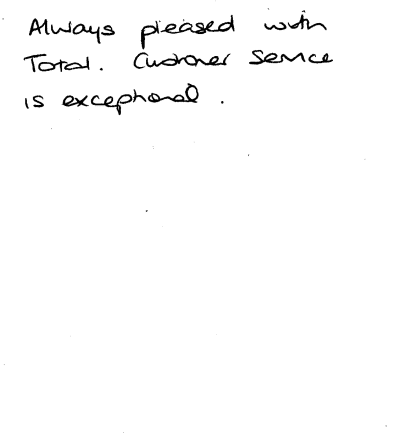 Always pleased with
Total. Customer Service
is exceptional.